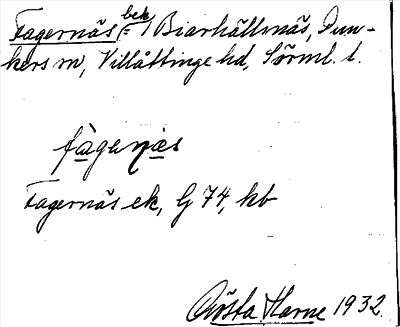 Fagernäs bek (= Biarhällsnäs, Dun-
kers sn, Villåttinge hd, Sörml. l.
fàgeṇạs
Fagernäs ek, G 74, kb
Gösta Harne 1932.